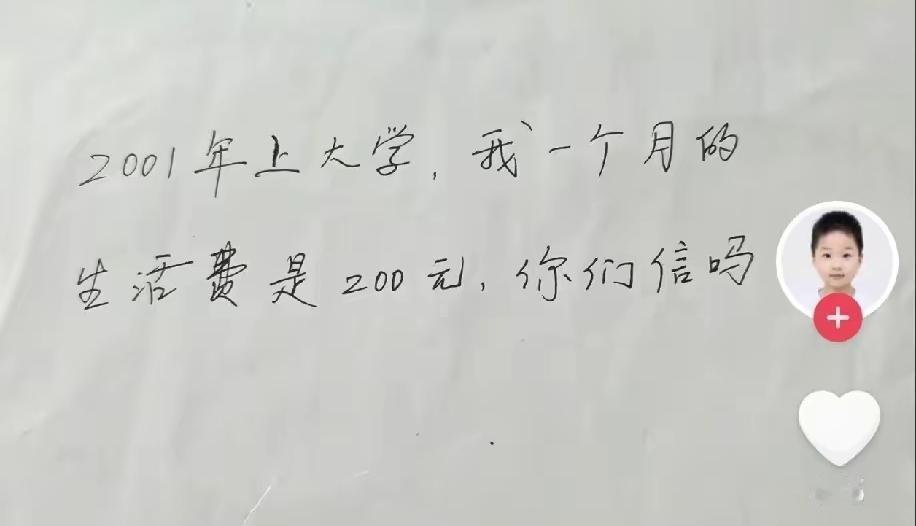 2001年上大学,我一个月的
生活费是200元,你们信吗